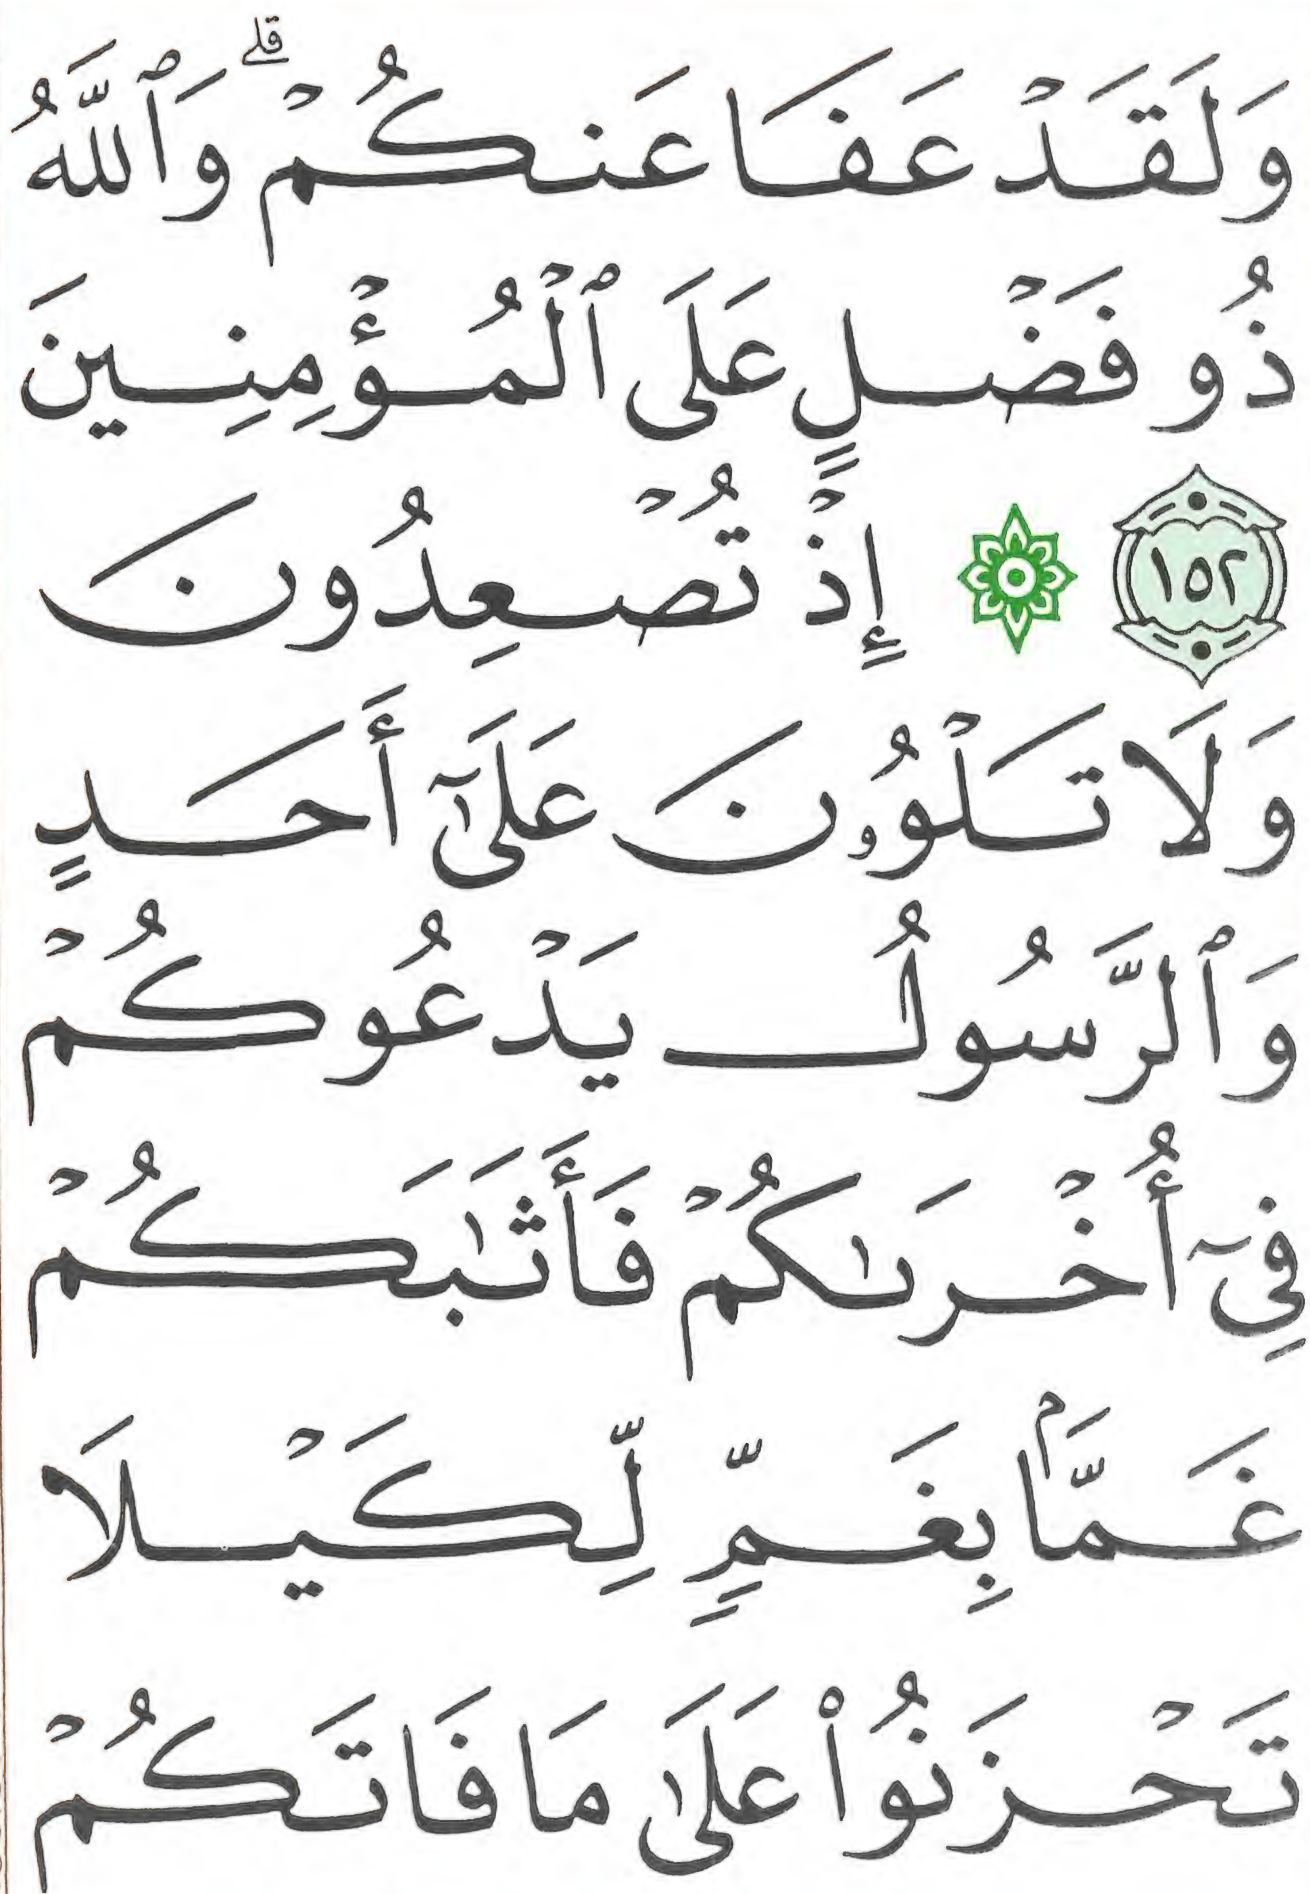 وَلَقَدْ عَفَا عَنكُمْ ۗ وَٱللَّهُ
ذُو فَضْلٍ عَلَى ٱلْمُؤْمِنِينَ
١٥٢ إِذْ تُصْعِدُونَ
وَلَا تَلْوُۥنَ عَلَىٰٓ أَحَدٍ
وَٱلرَّسُولُ يَدْعُوكُمْ
فِىٓ أُخْرَىٰكُمْ فَأَثَـٰبَكُمْ
غَمًّۢا بِغَمٍّ لِّكَيْلَا
تَحْزَنُوا۟ عَلَىٰ مَا فَاتَكُمْ